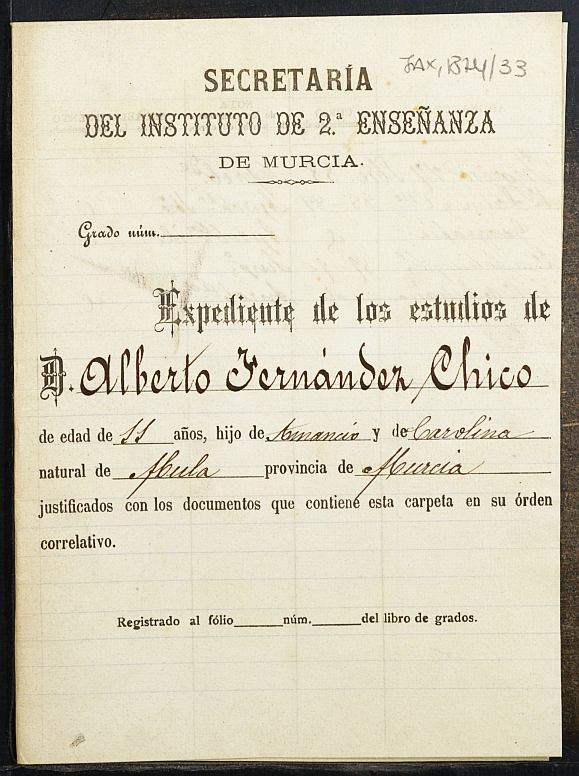 JAX, 1374/33
SECRETARÍA
DEL INSTITUTO DE 2.ª ENSEÑANZA
DE MURCIA.
Grado núm.
Expediente de los estudios de
D. Alberto Fernández Chico
de edad de 11 años, hijo de Amancio y de Carolina
natural de Mula provincia de Murcia
justificados con los documentos que contiene esta carpeta en su órden
correlativo.
Registrado al fólio núm. del libro de grados.